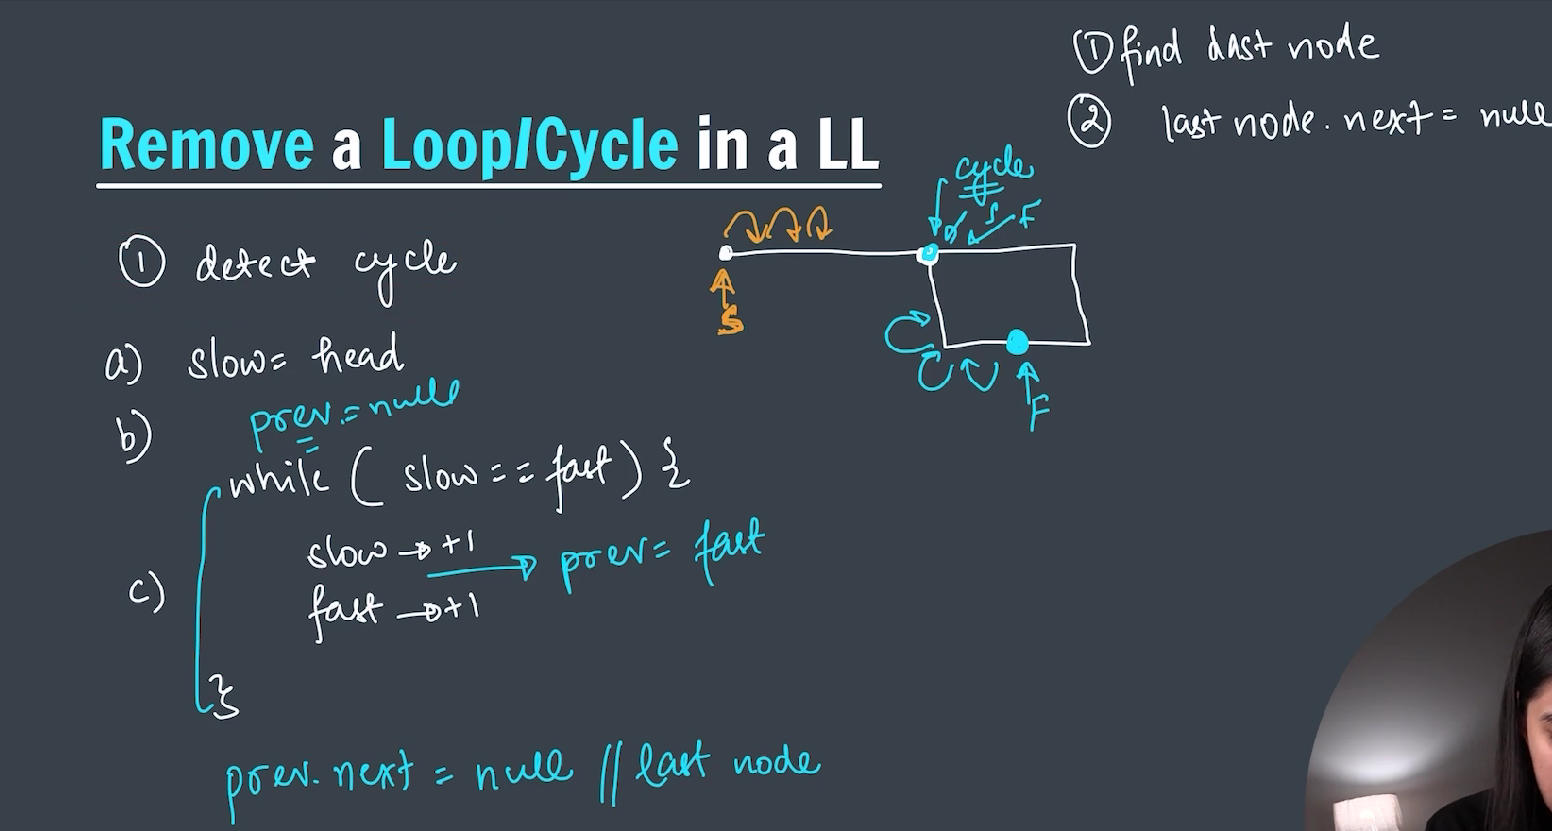 ① find last node
② last node. next = null
Remove a Loop/Cycle in a LL
cycle
S F
① detect cycle
S
a) slow = head
F
b) prev = null
while ( slow == fast ) {
slow → +1 → prev = fast
c)
fast → +1
}
prev. next = null // last node